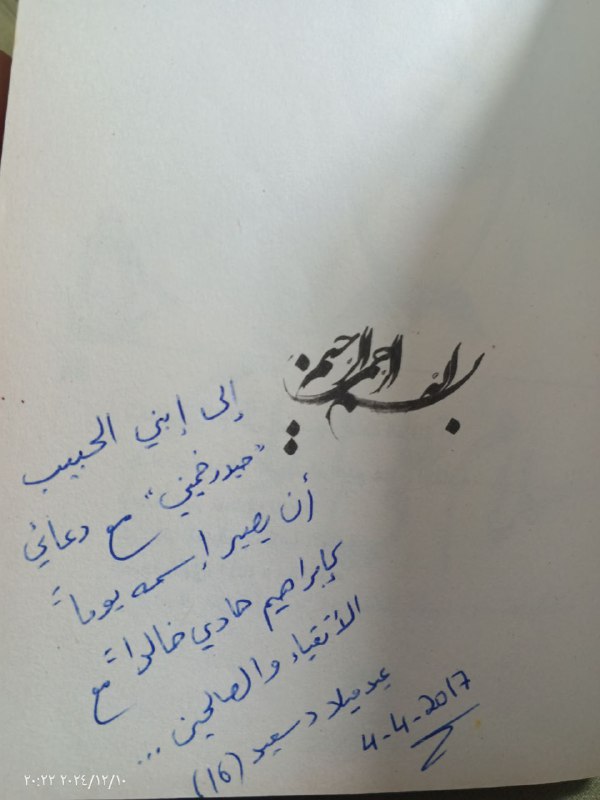 بسم الله الرحمن الرحيم
إلى إبني الحبيب
"حيدر خميني" مع دعائي
أن يصير إسمه يوماً
كإبراهيم هادي خالداً مع
الأتقياء والصالحين ...
عيد ميلاد سعيد (16)
4-4-2017
٢٠:٢٢ ٢٠٢٤/١٢/١٠